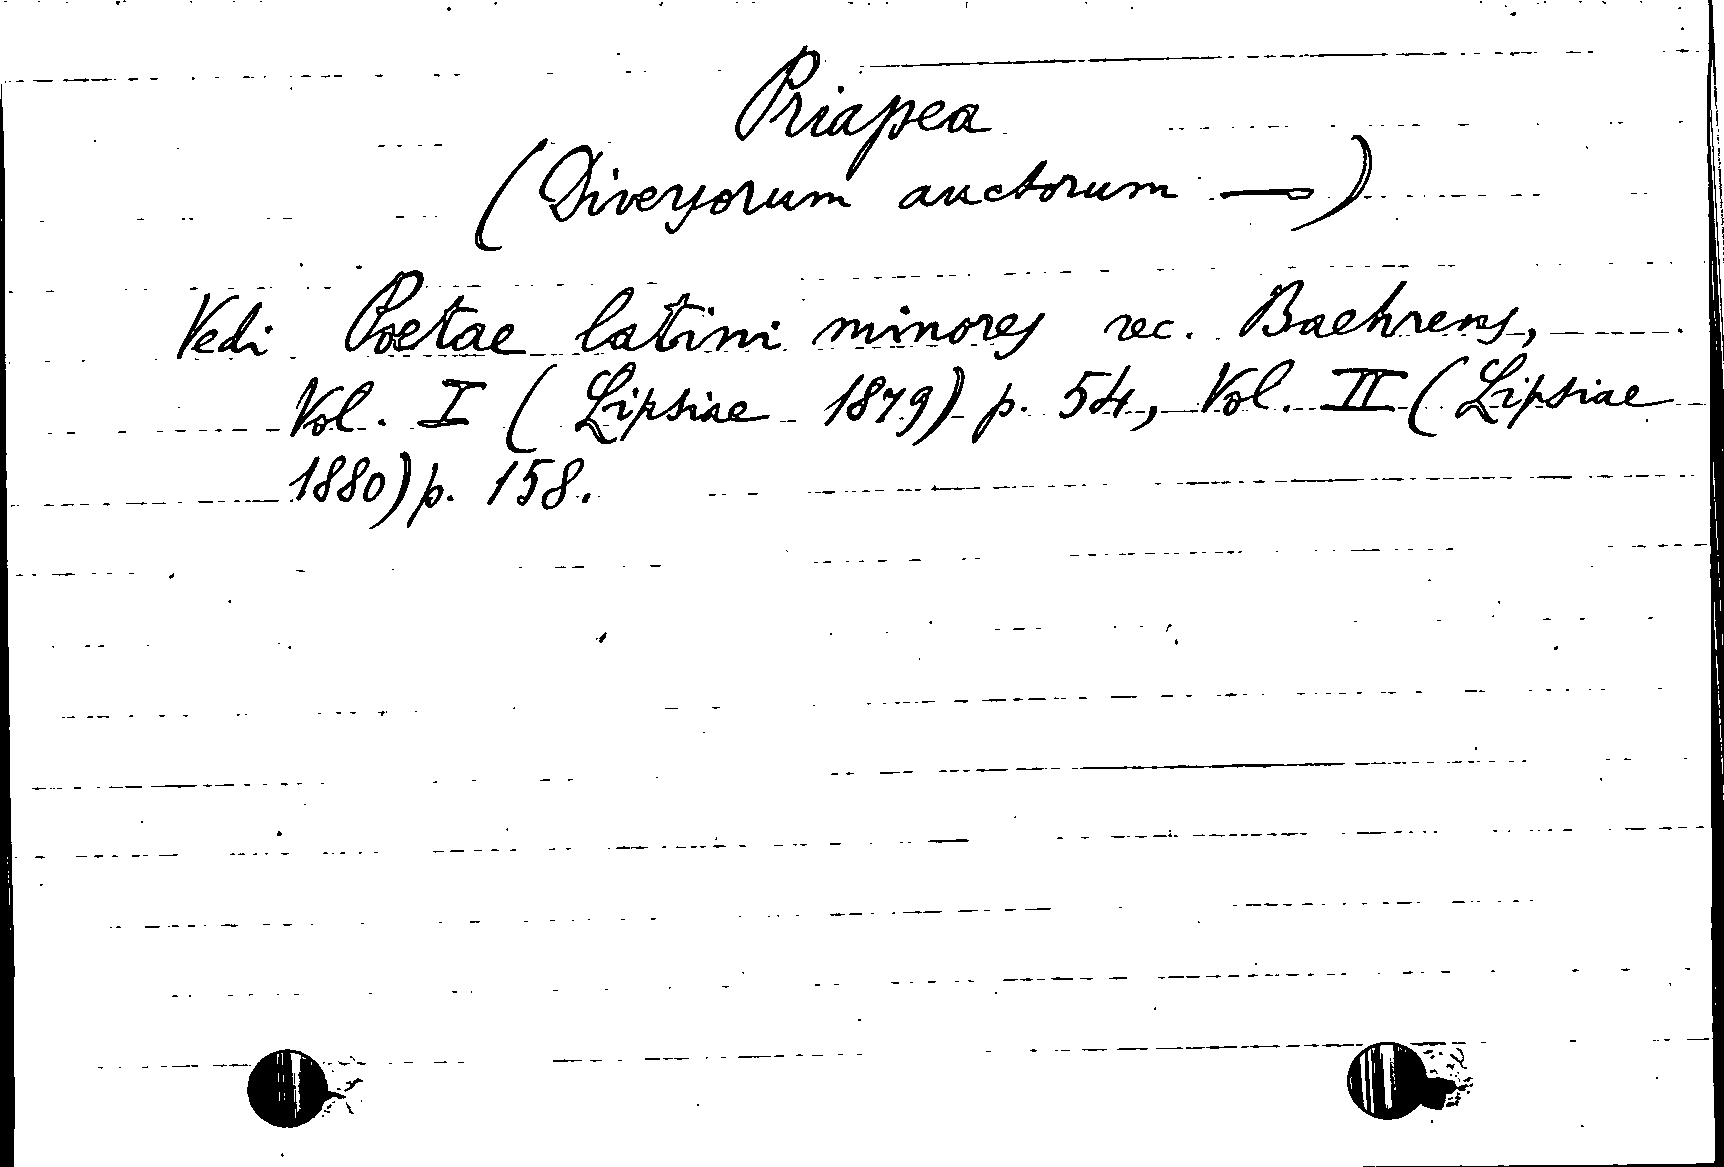 Priapea
(Diversorum auctorum —)
Vedi Poetae latini minores rec. Baehrens,
Vol. I (Lipsiae 1879) p. 54, Vol. II (Lipsiae
1880) p. 158.